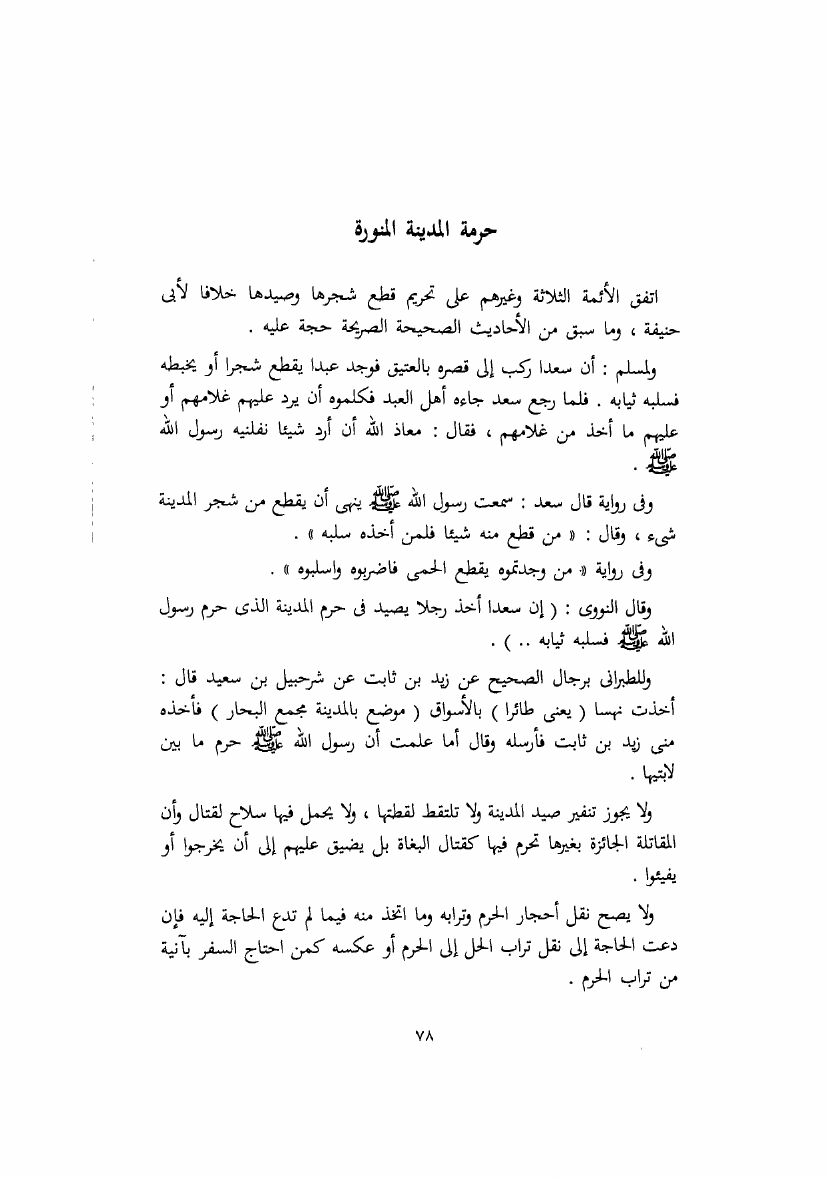 حرمة المدينة المنورة
اتفق الأئمة الثلاثة وغيرهم على تحريم قطع شجرها وصيدها خلافا لأبى
حنيفة ، وما سبق من الأحاديث الصحيحة الصريحة حجة عليه .
ولمسلم : أن سعدا ركب إلى قصره بالعتيق فوجد عبدا يقطع شجرا أو يخبطه
فسلبه ثيابه . فلما رجع سعد جاءه أهل العبد فكلموه أن يرد عليهم غلامهم أو
عليهم ما أخذ من غلامهم ، فقال : معاذ الله أن أرد شيئا نفلنيه رسول الله
ﷺ .
وفى رواية قال سعد : سمعت رسول الله ﷺ ينهى أن يقطع من شجر المدينة
شىء ، وقال : « من قطع منه شيئا فلمن أخذه سلبه » .
وفى رواية « من وجدتموه يقطع الحمى فاضربوه واسلبوه » .
وقال النووى : ( إن سعدا أخذ رجلا يصيد فى حرم المدينة الذى حرم رسول
الله ﷺ فسلبه ثيابه .. ) .
وللطبرانى برجال الصحيح عن زيد بن ثابت عن شرحبيل بن سعيد قال :
أخذت نهسا ( يعنى طائرا ) بالأسواق ( موضع بالمدينة مجمع البحار ) فأخذه
منى زيد بن ثابت فأرسله وقال أما علمت أن رسول الله ﷺ حرم ما بين
لابتيها .
ولا يجوز تنفير صيد المدينة ولا تلتقط لقطتها ، ولا يحمل فيها سلاح لقتال وأن
المقاتلة الجائزة بغيرها تحرم فيها كقتال البغاة بل يضيق عليهم إلى أن يخرجوا أو
يفيئوا .
ولا يصح نقل أحجار الحرم وترابه وما اتخذ منه فيما لم تدع الحاجة إليه فإن
دعت الحاجة إلى نقل تراب الحل إلى الحرم أو عكسه كمن احتاج السفر بآنية
من تراب الحرم .
٧٨